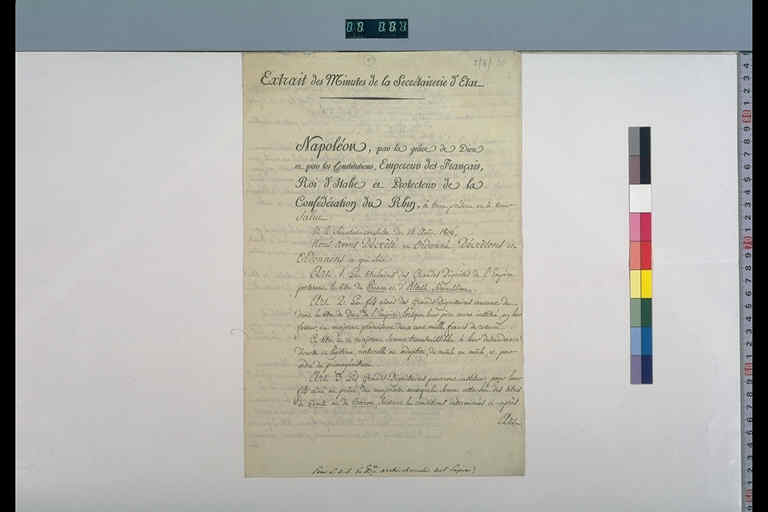 Extrait des Minutes de la Secrétairerie d'Etat
Napoléon, par la grâce de Dieu
et par les Constitutions, Empereur des Français,
Roi d'Italie et Protecteur de la
Confédération du Rhin, à tous présens et à venir
Salut.
Nous avons Décrété et Ordonné, Décrétons et
Ordonnons ce qui suit:
Art. 1. Les titulaires des Grandes Dignités de l'Empire
porteront le titre de Prince et d'Altesse Sérénissime.
Art. 2. Les fils ainés des Grands Dignitaires auront de
droit le titre de Duc de l'Empire, lorsque leur père aura institué en leur
faveur un majorat produisant deux cent mille francs de revenu.
Ce titre et ce majorat seront transmissibles à leur descendance
directe et légitime, naturelle ou adoptive, de mâle en mâle, et par
ordre de primogéniture.
Art. 3. Les Grands Dignitaires pourront instituer, pour leur
fils ainé ou puiné, des majorats auxquels seront attachés des titres
de Comte ou de Baron, suivant les conditions déterminées ci-après.